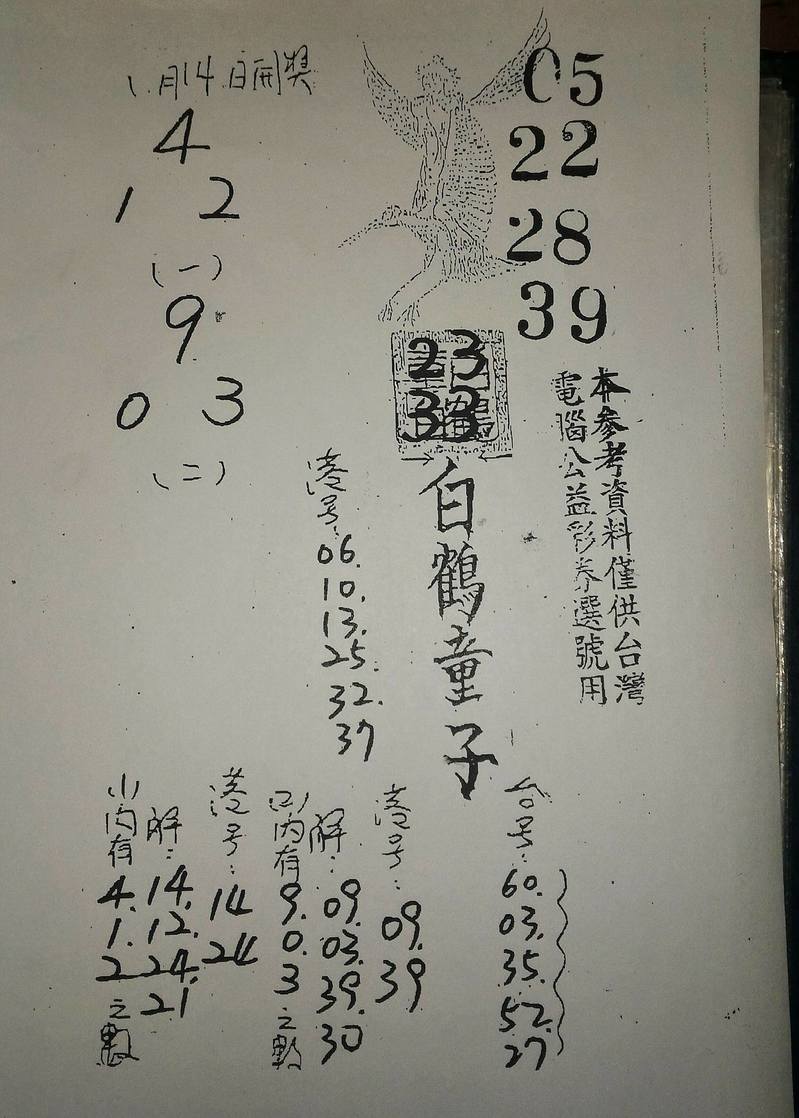 1月14日開獎
4
1 2
(一)
9
0 3
(二)
05
22
28
39
23
33
本參考資料僅供台灣
電腦公益彩券選號用
白鶴童子
港号:
06.
10.
13.
25.
32.
37
台号:
60.
03.
35.
52.
27
港号:
09.
39
解:
09.
03.
39.
30
(2)内有
9.
0.
3
之數
港号:
14
24
解:
14.
12.
24.
21
(1)内有
4.
1.
2
之數